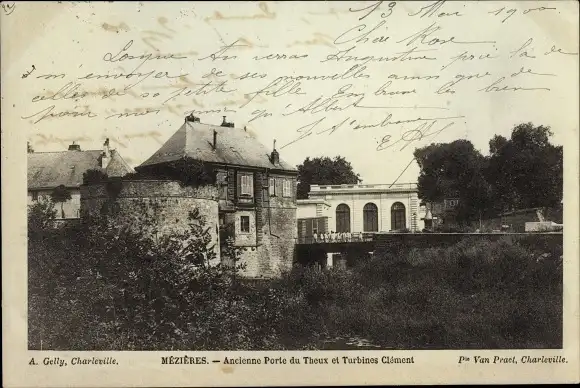 13 Mai 1900
Chère Rose
Lorsque tu verras Augustine prie la de
m'envoyer de ses nouvelles ainsi que de
celles de sa petite fille. Embrasse les bien
pour moi qu'Albert
t'embrasse
A. Gelly, Charleville.
MÉZIÈRES. — Ancienne Porte du Theux et Turbines Clément
Pie Van Praet, Charleville.